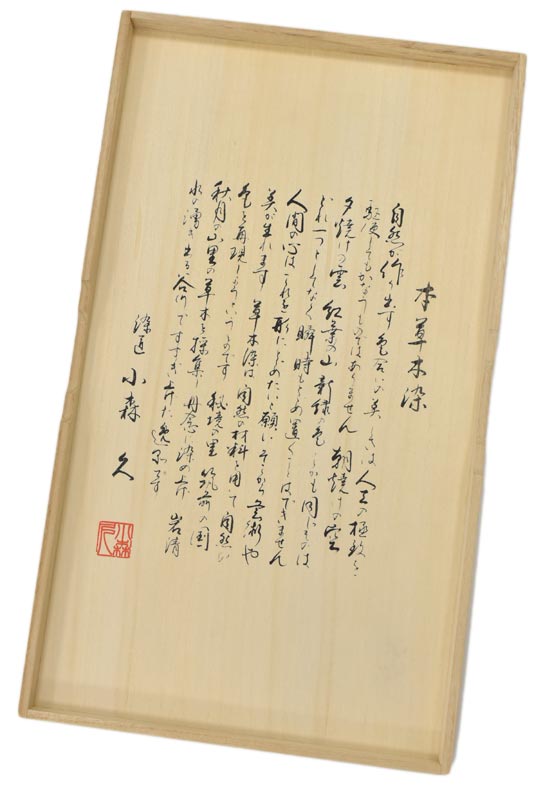 本草木染
自然が作り出す色合いの美しさは人工の極致を
駆使してもかなうものではありません 朝焼けの空
夕焼けの雲 紅葉の山 新緑の色 しかも同じものは
どれ一つとしてなく 瞬時もとめ置くことはできません
人間の心は これを形にとどめたいと願い そこから芸術や
美が生れます 草木染は 自然の材料を用いて自然の
色を再現しようというものです 秘境の里 筑前の国
秋月の山里の草木を採集し 丹念に染め上げ 岩清
水の湧き出る谷川ですすぎ上げた逸品です
染匠 小森 久
小森久